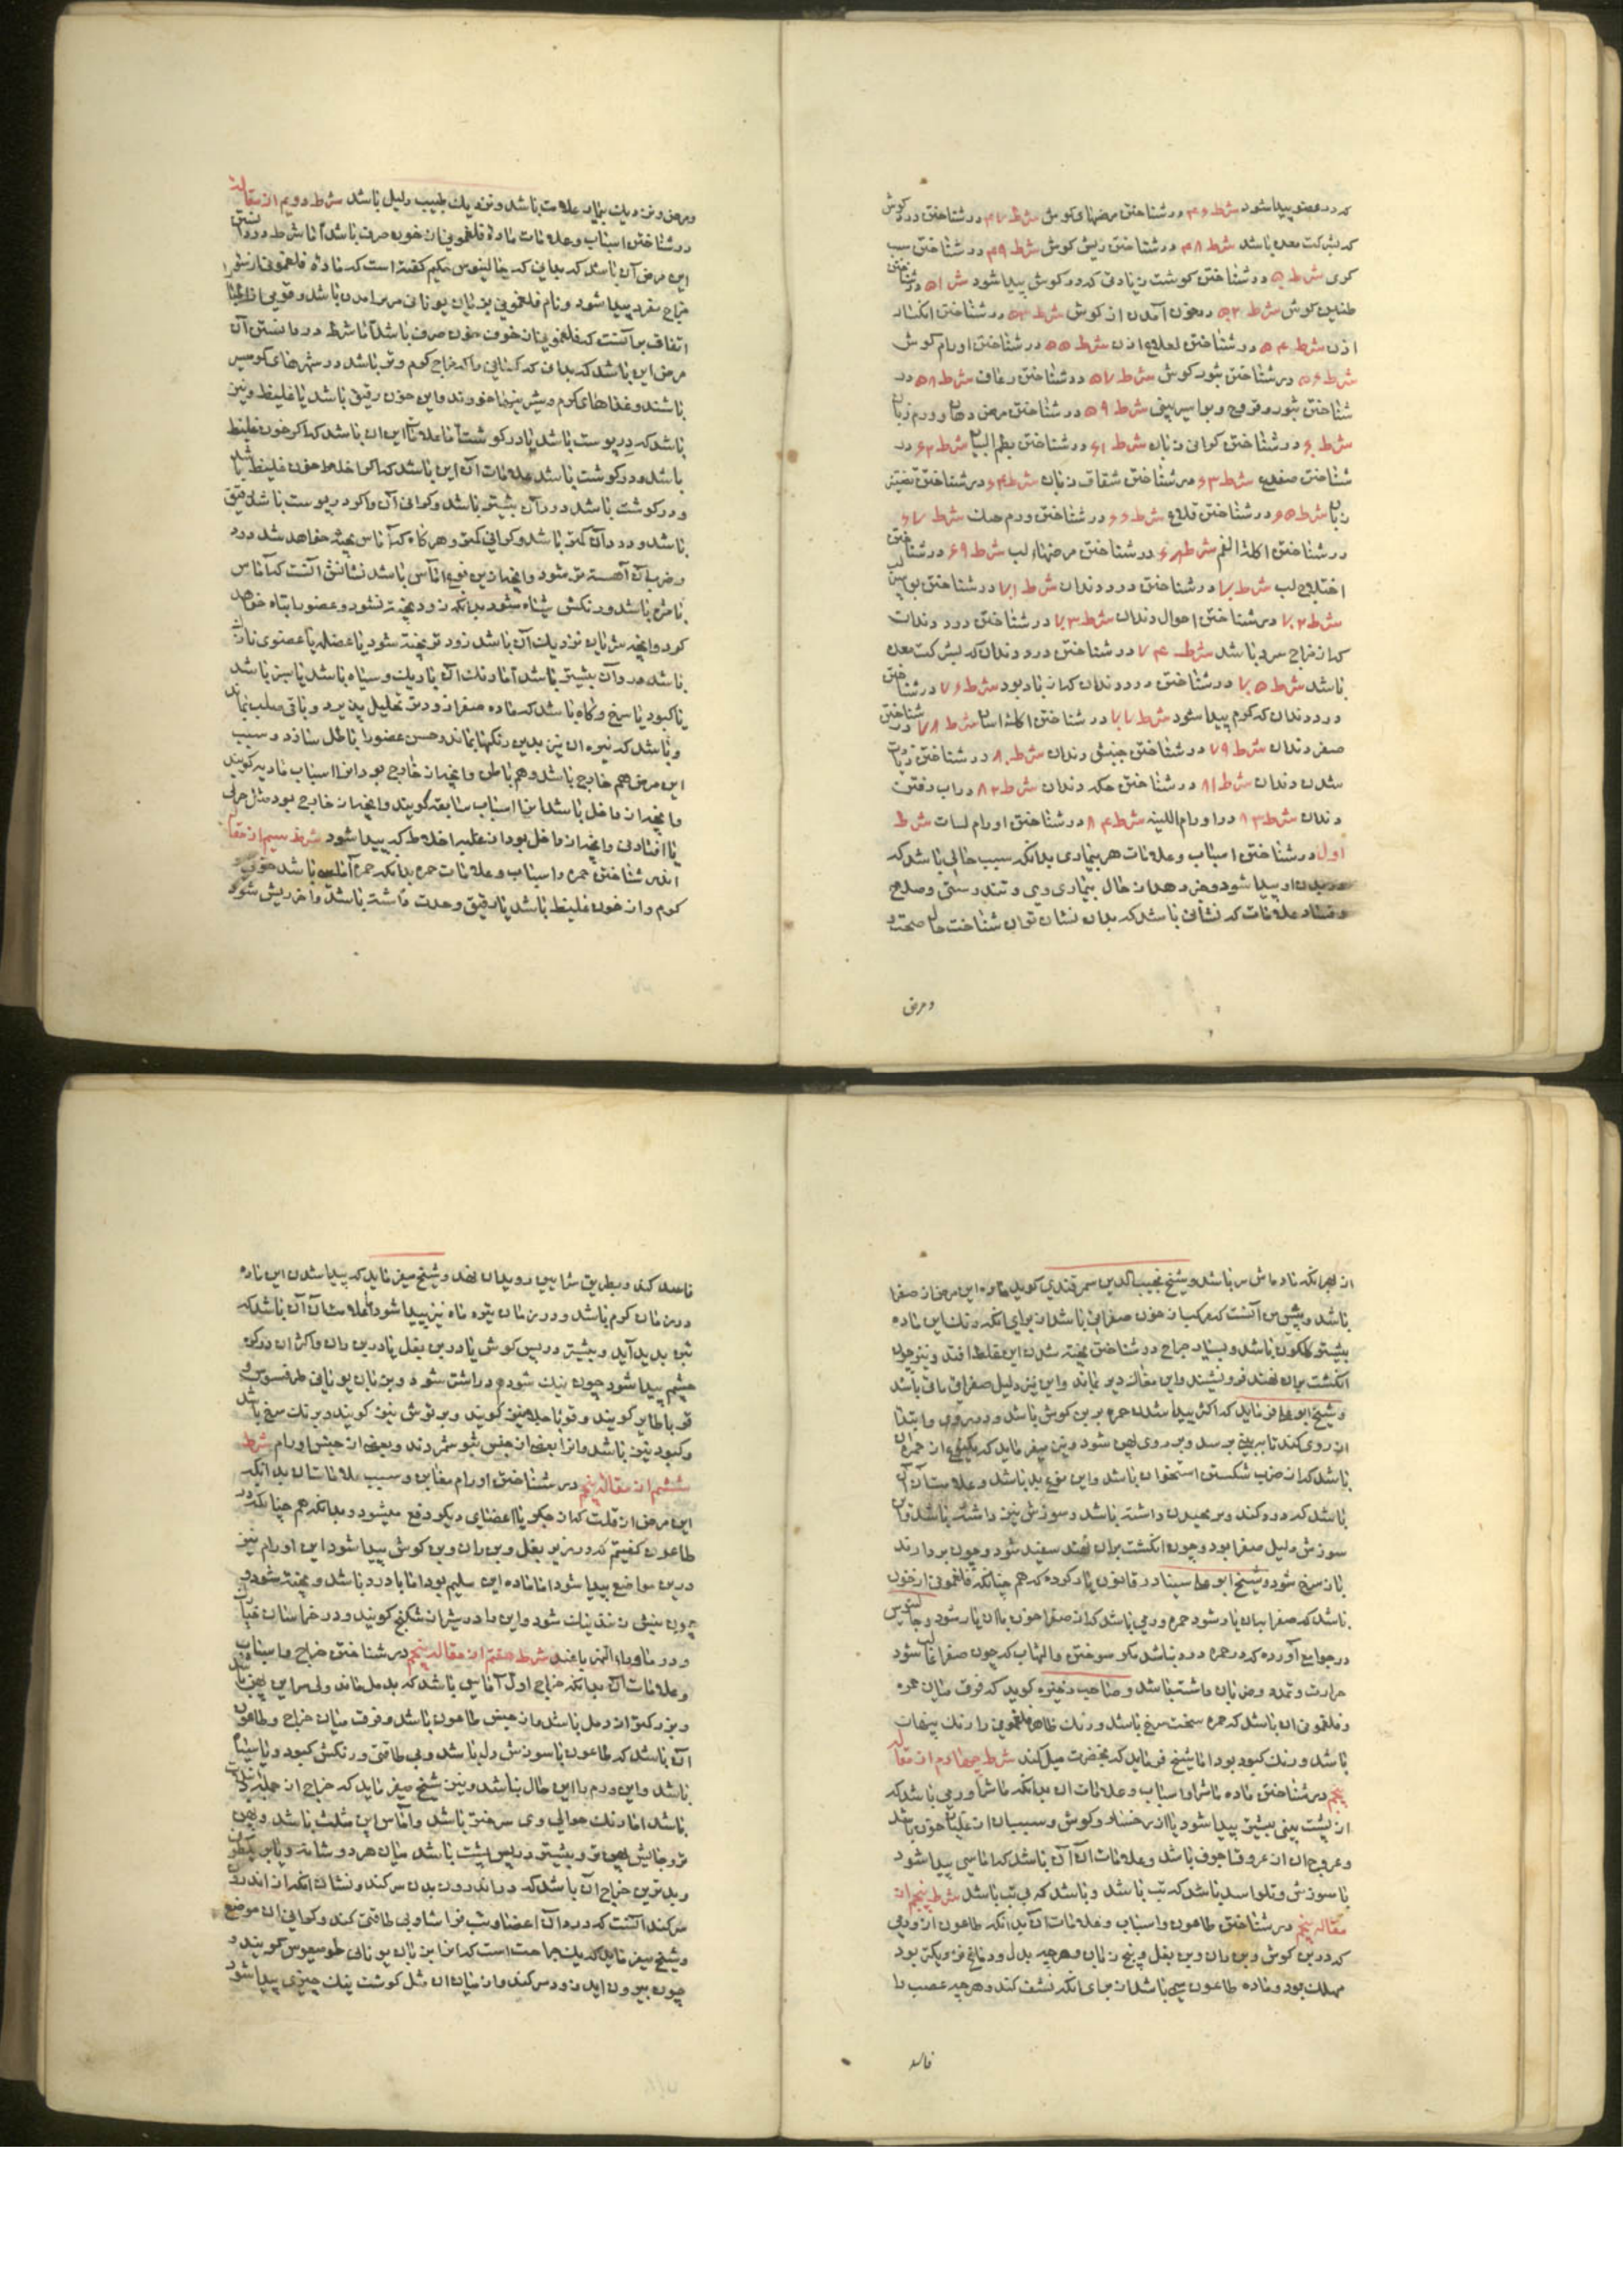 که در عضو پیدا شود شرط ۴۶ در شناختن مرضهای کوش شرط ۴۷ در شناختن درد کوش
که بشرکت معده باشد شرط ۴۸ در شناختن ریش کوش شرط ۴۹ در شناختن سبب
کری شرط ۵۰ در شناختن کوشت زیادتی که در کوش پیدا شود شرط ۵۱ در شناختن
طنین کوش شرط ۵۲ در خون آمدن از کوش شرط ۵۳ در شناختن انکسار
اذن شرط ۵۴ در شناختن اذن شرط ۵۵ در شناختن اورام کوش
شرط ۵۶ در شناختن بثور کوش شرط ۵۷ در شناختن رعاف شرط ۵۸ در
شناختن بثور و قروح و بواسیر بینی شرط ۵۹ در شناختن مرض دهان و ورم زبان
شرط ۶۰ در شناختن کرانی زبان شرط ۶۱ در شناختن بظم اللسان شرط ۶۲ در
شناختن ضفدع شرط ۶۳ در شناختن شقاق زبان شرط ۶۴ در شناختن
زبان شرط ۶۵ در شناختن قلاع شرط ۶۶ در شناختن ورم حنک شرط ۶۷
در شناختن اکلة الفم شرط ۶۸ در شناختن مرضهاء لب شرط ۶۹ در شناختن
اختلاج لب شرط ۷۰ در شناختن درد دندان شرط ۷۱ در شناختن بواسیر لب
شرط ۷۲ در شناختن احوال دندان شرط ۷۳ در شناختن درد دندان
که از مزاج سرد باشد شرط ۷۴ در شناختن درد دندان که بشرکت معده
باشد شرط ۷۵ در شناختن درد دندان که از باد بود شرط ۷۶ در شناختن
درد دندان که کرم پیدا شود شرط ۷۷ در شناختن اکلة اسنان شرط ۷۸ در شناختن
دندان شرط ۷۹ در شناختن جنبش دندان شرط ۸۰ در شناختن
شدن دندان شرط ۸۱ در شناختن حکه دندان شرط ۸۲ در آب رفتن
دندان شرط ۸۳ در اورام اللثه شرط ۸۴ در شناختن اورام لسان شرط
اول در شناختن اسباب و علامات هر بیماری بدانکه سبب حالی باشد که
در بدن او پیدا شود و خبر دهد از حال بیماری وی و تندرستی و صلاح
و فساد علامات که نشانی باشد که بدان نشان توان شناخت حال صحت
و مرض
و مرض و نزدیک بیمار علامت باشد و نزدیک طبیب دلیل باشد شرط دویم از مقالت
در شناختن اسباب و علامات ماده فلغمونی از خون صرف باشد اما شرط در دانستن
این مرض آن باشد که بدانی که جالینوس حکیم کفته است که ماده فلغمونی از
مزاج مفرد پیدا شود و نام فلغمونی بزبان یونانی باشد و قومی اطبا
اتفاق بر آنست که فلغمونی از خون صرف باشد اما شرط در دانستن آن
مرض این باشد که بدانی که کسانی را که مزاج کرم و تر باشد در شهرهای کرمسیر
باشند و غذاهای کرم و شیرینیها خورند و این خون رقیق باشد یا غلیظ و نیز
باشد که در پوست باشد یا در کوشت اما علامت این آن باشد که اکر خون غلیظ
باشد و در کوشت باشد علامات آن این باشد که اکر خلط خون غلیظ باشد
و در کوشت باشد درد آن بیشتر باشد و کرانی آن و اکر در پوست باشد رقیق
باشد و درد آن کمتر باشد و کرانی کمتر و هر کاه که آماس پخته خواهد شد درد
و ضربان آهسته تر شود و آنچه از این نوع آماس باشد نشانش آنست که آماس
باشد و رنکش سیاه شود بدانکه زود پخته نشود و عضو را تباه خواهد
کرد و آنچه شریان نزدیک آن باشد زود تر پخته شود یا عضله یا عضوی
باشد درد آن بیشتر باشد اما رنک آن تاریک و سیاه باشد یا سبز باشد
یا کبود یا سرخ و کاه باشد که ماده صفرا زودتر تحلیل پذیرد و باقی صلب بماند
و باشد که تیره آن نیز بدین رنکها بماند و حس عضو را باطل سازد و سبب
این مرض هم خارج باشد و هم باطن و آنچه از خارج بود آنرا اسباب بادیه کویند
و آنچه از داخل باشد آنرا اسباب سابقه کویند و آنچه از خارج بود مثل جراحتی
یا افتادنی و آنچه از داخل بود از غلبه اخلاط که پیدا شود شرط سیم از مقاله
اندر شناختن حمره و اسباب و علامات حمره بدانکه حمره آماسی باشد خونی
کرم و از خون غلیظ باشد یا رقیق و حدت داشته باشد و آخر ریش شود
از بهر آنکه ماده ماشرا باشد و شیخ نجیب الدین سمرقندی کوید ماده این مرض از صفرا
باشد و پیش من آنست که مرکب از خون صفرایی باشد از برای آنکه رنک این ماده
بیشتر کلکون باشد و بسیار جراح در شناختن پخته شدن این بغلط افتد و نیز چون
انکشت بر آن نهند فرو نشیند و این مغاک دیر نماند و این نیز دلیل صفرای مائی باشد
و شیخ ابو علی فرماید که اکثر پیدا شدن حمره بر بن کوش باشد و در روی و ابتدا
از روی کند تا بر بینی برسد و بر روی پهن شود و نیز میفرماید که یکنوع از حمره آن
باشد که از ضرب شکستن استخوان باشد و این نوع بد باشد و علامت آن آن
باشد که درد کند و بر محیدن داشته باشد و سوزش نیز داشته باشد و آن
سوزش دلیل صفرا بود و چون انکشت بر آن نهند سفید شود و چون بردارند
باز سرخ شود و شیخ ابو علی سینا در قانون یاد کرده که هم چنانکه فلغمونی از خون
باشد که صفرا با آن یار شود حمره ورمی باشد که از صفرا خون با آن یار شود و جالینوس
در جوامع آورده که در حمره درد نباشد مکر سوختن و التهاب که چون صفرا غالب شود
حرارت و تمدد و ضربان داشته باشد و صاحب ذخیره کوید که فرق میان حمره
و فلغمونی آن باشد که حمره سخت سرخ باشد و رنک ظاهر فلغمونی را رنک پنهان
باشد و رنک کبود بود اما شیخ فرماید که بخضرت میل کند شرط چهارم از مقاله
پنجم در شناختن ماده ماشرا و اسباب و علامات آن بدانکه ماشرا ورمی باشد که
از پشت بینی بیشتر پیدا شود یا از رخساره و کوش و سبب آن از غلیان خون باشد
و عروج آن از عروق اجوف باشد و علامات آن آن باشد که آماسی پیدا شود
با سوزش و تلواسه باشد که تب باشد و باشد که بی تب باشد شرط پنجم از
مقاله پنجم در شناختن طاعون و اسباب و علامات آن بدانکه طاعون از ورمی
که در بن کوش و بن ران و بن بغل و بیخ زبان و هر چه بدل و دماغ نزدیکتر بود
مهلک بود و ماده طاعون سمی باشد از برای آنکه نشف کند و هر چه عصب را
فاسد
فاسد کند و بطریق شرایین رو بدان نهد و شیخ میفرماید که پیدا شدن این ماده
در زمان کرم باشد و در زمان تیره ماه نیز پیدا شود اما علامت آن آن باشد که
تب پدید آید و بیشتر در پس کوش یا در بن بغل یا در بن ران و اکثر آن در کرد
چشم پیدا شود چون نیک شود و دراشق شود و بزبان یونانی طرفسوس و
قوباطایر کویند و قوباحلامیز کویند و بر توش نیز کویند و برنک سرخ باشد
و کبود نیز باشد و آنرا بعضی از جنس بثور شمردند و بعضی از جنس اورام شرط
ششم از مقاله پنجم در شناختن اورام مغابن و سبب علامات آن بدانکه
این مرض از قلت که از جکر یا اعضای دیکر دفع میشود و بدانکه هم چنانکه در
طاعون کفتیم که در زیر بغل و بن ران و بن کوش پیدا شود این اورام نیز
درین مواضع پیدا شود اما ماده این سلیم بود اما با درد باشد و پخته شود و
چون نیش زنند نیک شود و این را در شیراز شکنج کویند و در خراسان خیارک
و در ماوراء النهر باغند شرط هفتم از مقاله پنجم در شناختن خراج و اسباب
و علامات آن بدانکه خراج اول آماسی باشد که بدمل ماند ولی سر این پهن باشد
و بزرکتر از دمل باشد و از جنس طاعون باشد و فرق میان خراج و طاعون
آن باشد که طاعون با سوزش دل باشد و بی طاقتی و رنکش کبود و یا سیاه
باشد و این ورم با این حال نباشد و نیز شیخ میفرماید که خراج از جمله
باشد اما رنک حوالی وی سرختر باشد و آماس این مثلث باشد و پهن
تر و جایش پهن تر و بیشتر در پس پشت باشد میان هر دو شانه و یا بر پهلو
و بدترین خراج آن باشد که در اندرون بدن سر کند و نشان آنکه از اندرون
سر کند آنست که درد آن اعضا و تب فراشا و بی طاقتی کند و کرانی آن موضع
و شیخ میفرماید که یک جراحت است که آنرا بزبان یونانی طوسیعوس کویند و
چون بیرون آید زود سر کند و از میان آن مثل کوشت پنک چیزی پیدا شود